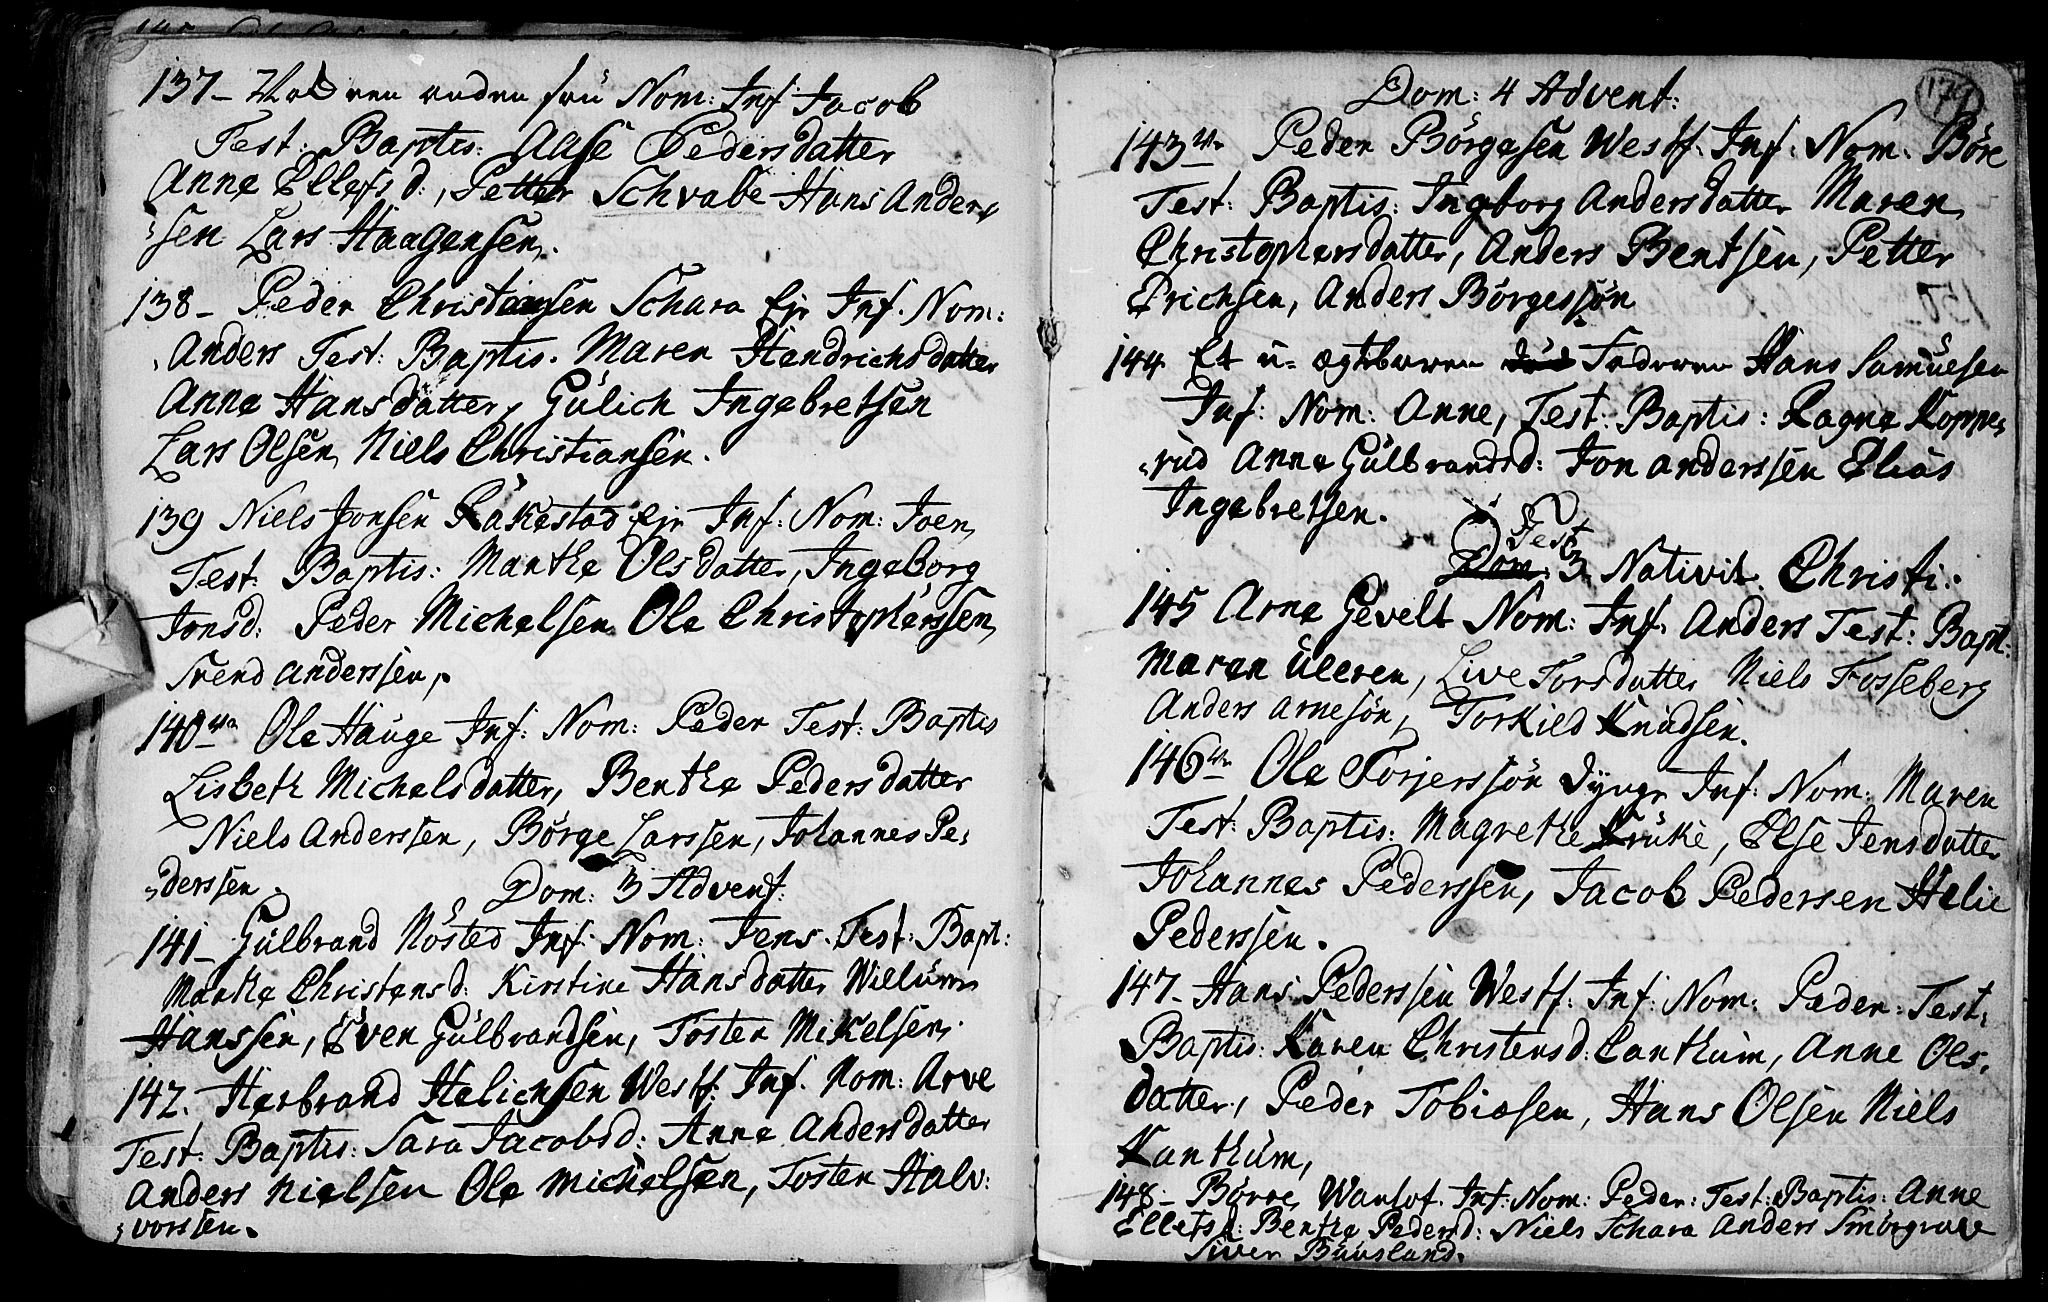 137- ved een anden frü Nom: Inf Jacob
Test: Baptis: Aase Pedersdatter
Anne Ellefs d:, Petter Schvabe Hans Ander-
=sen Lars Haagensen.
138- Peder Christiansen Schara Eje Inf. Nom:
Anders Test: Baptis. Maren Hendrichsdatter
Anne Hansdatter, Gülich Ingebretsen
Lars Olsen, Niels Christiansen.
139 Niels Jonsen Räkestad Eje Inf: Nom: Joen,
Test: Baptis: Marthe Olsdatter, Ingeborg
Jonsd: Peder Michelsen Ole Christophersen,
Svend Anderssen,
140 Ole Hauge Inf: Nom: Peder Test: Baptis
Lisbeth Michelsdatter, Benthe Pedersdatter
Niels Anderssen, Börge Larssen, Johannes Pe-
=derssen.
Dom: 3 Advent:
141- Gülbrand Nösted Inf: Nom: Jens. Test: Bapt:
Marthe Christensd: Kirstine Hansdatter Willüm
Hanssen, Even Gülbrandsen, Tosten Mikelsen.
142. Herbrand Heliehsen Westf: Inf. Nom: Arve
Test: Baptis: Sara Jacobsd: Anne Andersdatter
Anders Nielsen Ole Michelsen, Tosten Halv:
=vorssen.
179
Dom: 4 Advent:
143 Peder Börgesen Westf. Inf: Nom: Böre
Test: Baptis: Ingeborg Andersdatter Maren
Christophersdatter, Anders Bentsen, Petter
Erichsen, Anders Börgessön
144. Et ü- ægtebaaren Faderen Hans Samüelsen
Inf: Nom: Anne, Test: Baptis: Ragne Koppe-
=rüd Anne Gülbrandsd: Jon anderssen Elias
Ingebretsen.
Fest
Dom. 3 Nativit Christi.
145 Arne Gevelt Nom: Inf. Anders Test: Bapt:
Maren Üleren, Live Torsdatter Niels Fosseberg
Anders Arnesön, Torkild Knüdsen.
146 Ole Torjerssön Dynge Inf: Nom: Maren
Test: Baptis: Magrethe Krüke, Else Jensdatter
Johannes Pederssen, Jacob Pedersen Helie
Pederssen.
147- Hans Pederssen Westf: Inf: Nom: Peder: Test:
Baptis: Karen Christensd: Canthüm, Anne Ols-
datter, Peder Tobiasen, Hans Olsen Niels
Kanthüm,
148- Börre Wanlof. Inf: Nom: Peder: Test: Baptis: Anne
Ellefsd: Benthe Pedersd: Niels Schara Anders Smörgrav
Siver Büüsland.